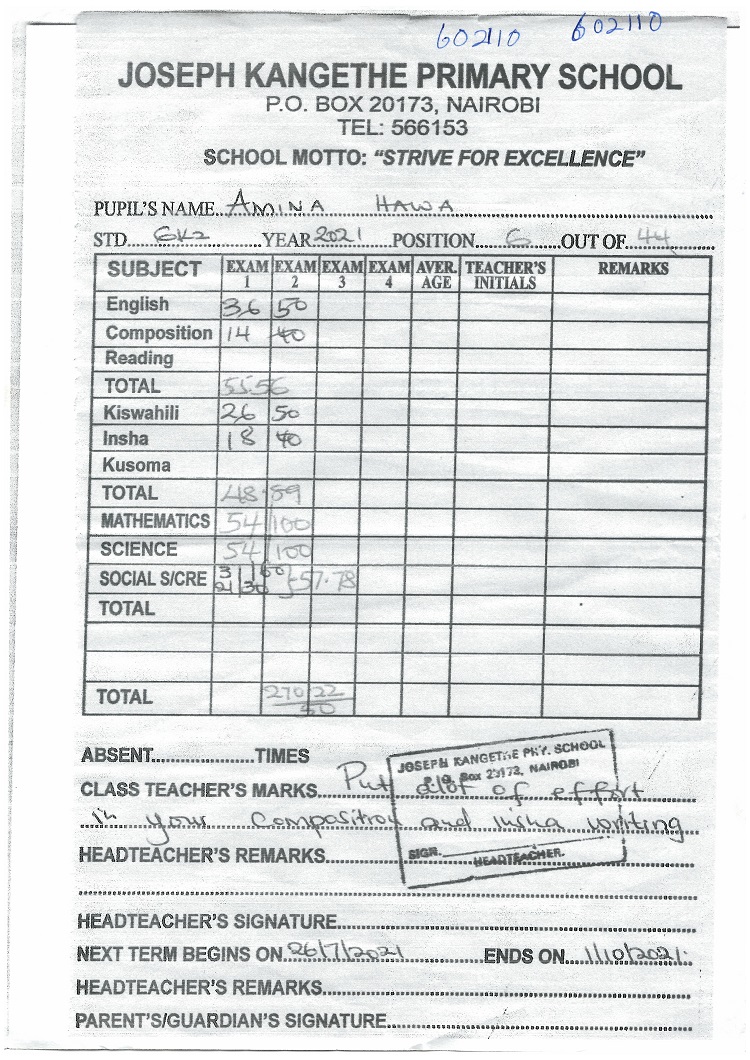 602110 602110
JOSEPH KANGETHE PRIMARY SCHOOL
P.O. BOX 20173, NAIROBI
TEL: 566153
SCHOOL MOTTO: "STRIVE FOR EXCELLENCE"
PUPIL'S NAME AMINA HAWA
STD. 6K2 YEAR 2021 POSITION 6 OUT OF 44
SUBJECT EXAM 1 EXAM 2 EXAM 3 EXAM 4 AVER. AGE TEACHER'S INITIALS REMARKS
English 36 50
Composition 14 40
Reading
TOTAL 55.56
Kiswahili 26 50
Insha 18 40
Kusoma
TOTAL 48.89
MATHEMATICS 54 100
SCIENCE 54 100
SOCIAL S/CRE 31 60 57.78
21 30
TOTAL
TOTAL 270.22
50
ABSENT TIMES
JOSEPH KANGETHE PRY. SCHOOL
P.O. Box 20173, NAIROBI
CLASS TEACHER'S MARKS Put alot of effort
in your composition and insha writing
HEADTEACHER'S REMARKS
SIGN. HEADTEACHER.
HEADTEACHER'S SIGNATURE
NEXT TERM BEGINS ON 26/7/2021 ENDS ON 1/10/2021.
HEADTEACHER'S REMARKS
PARENT'S/GUARDIAN'S SIGNATURE